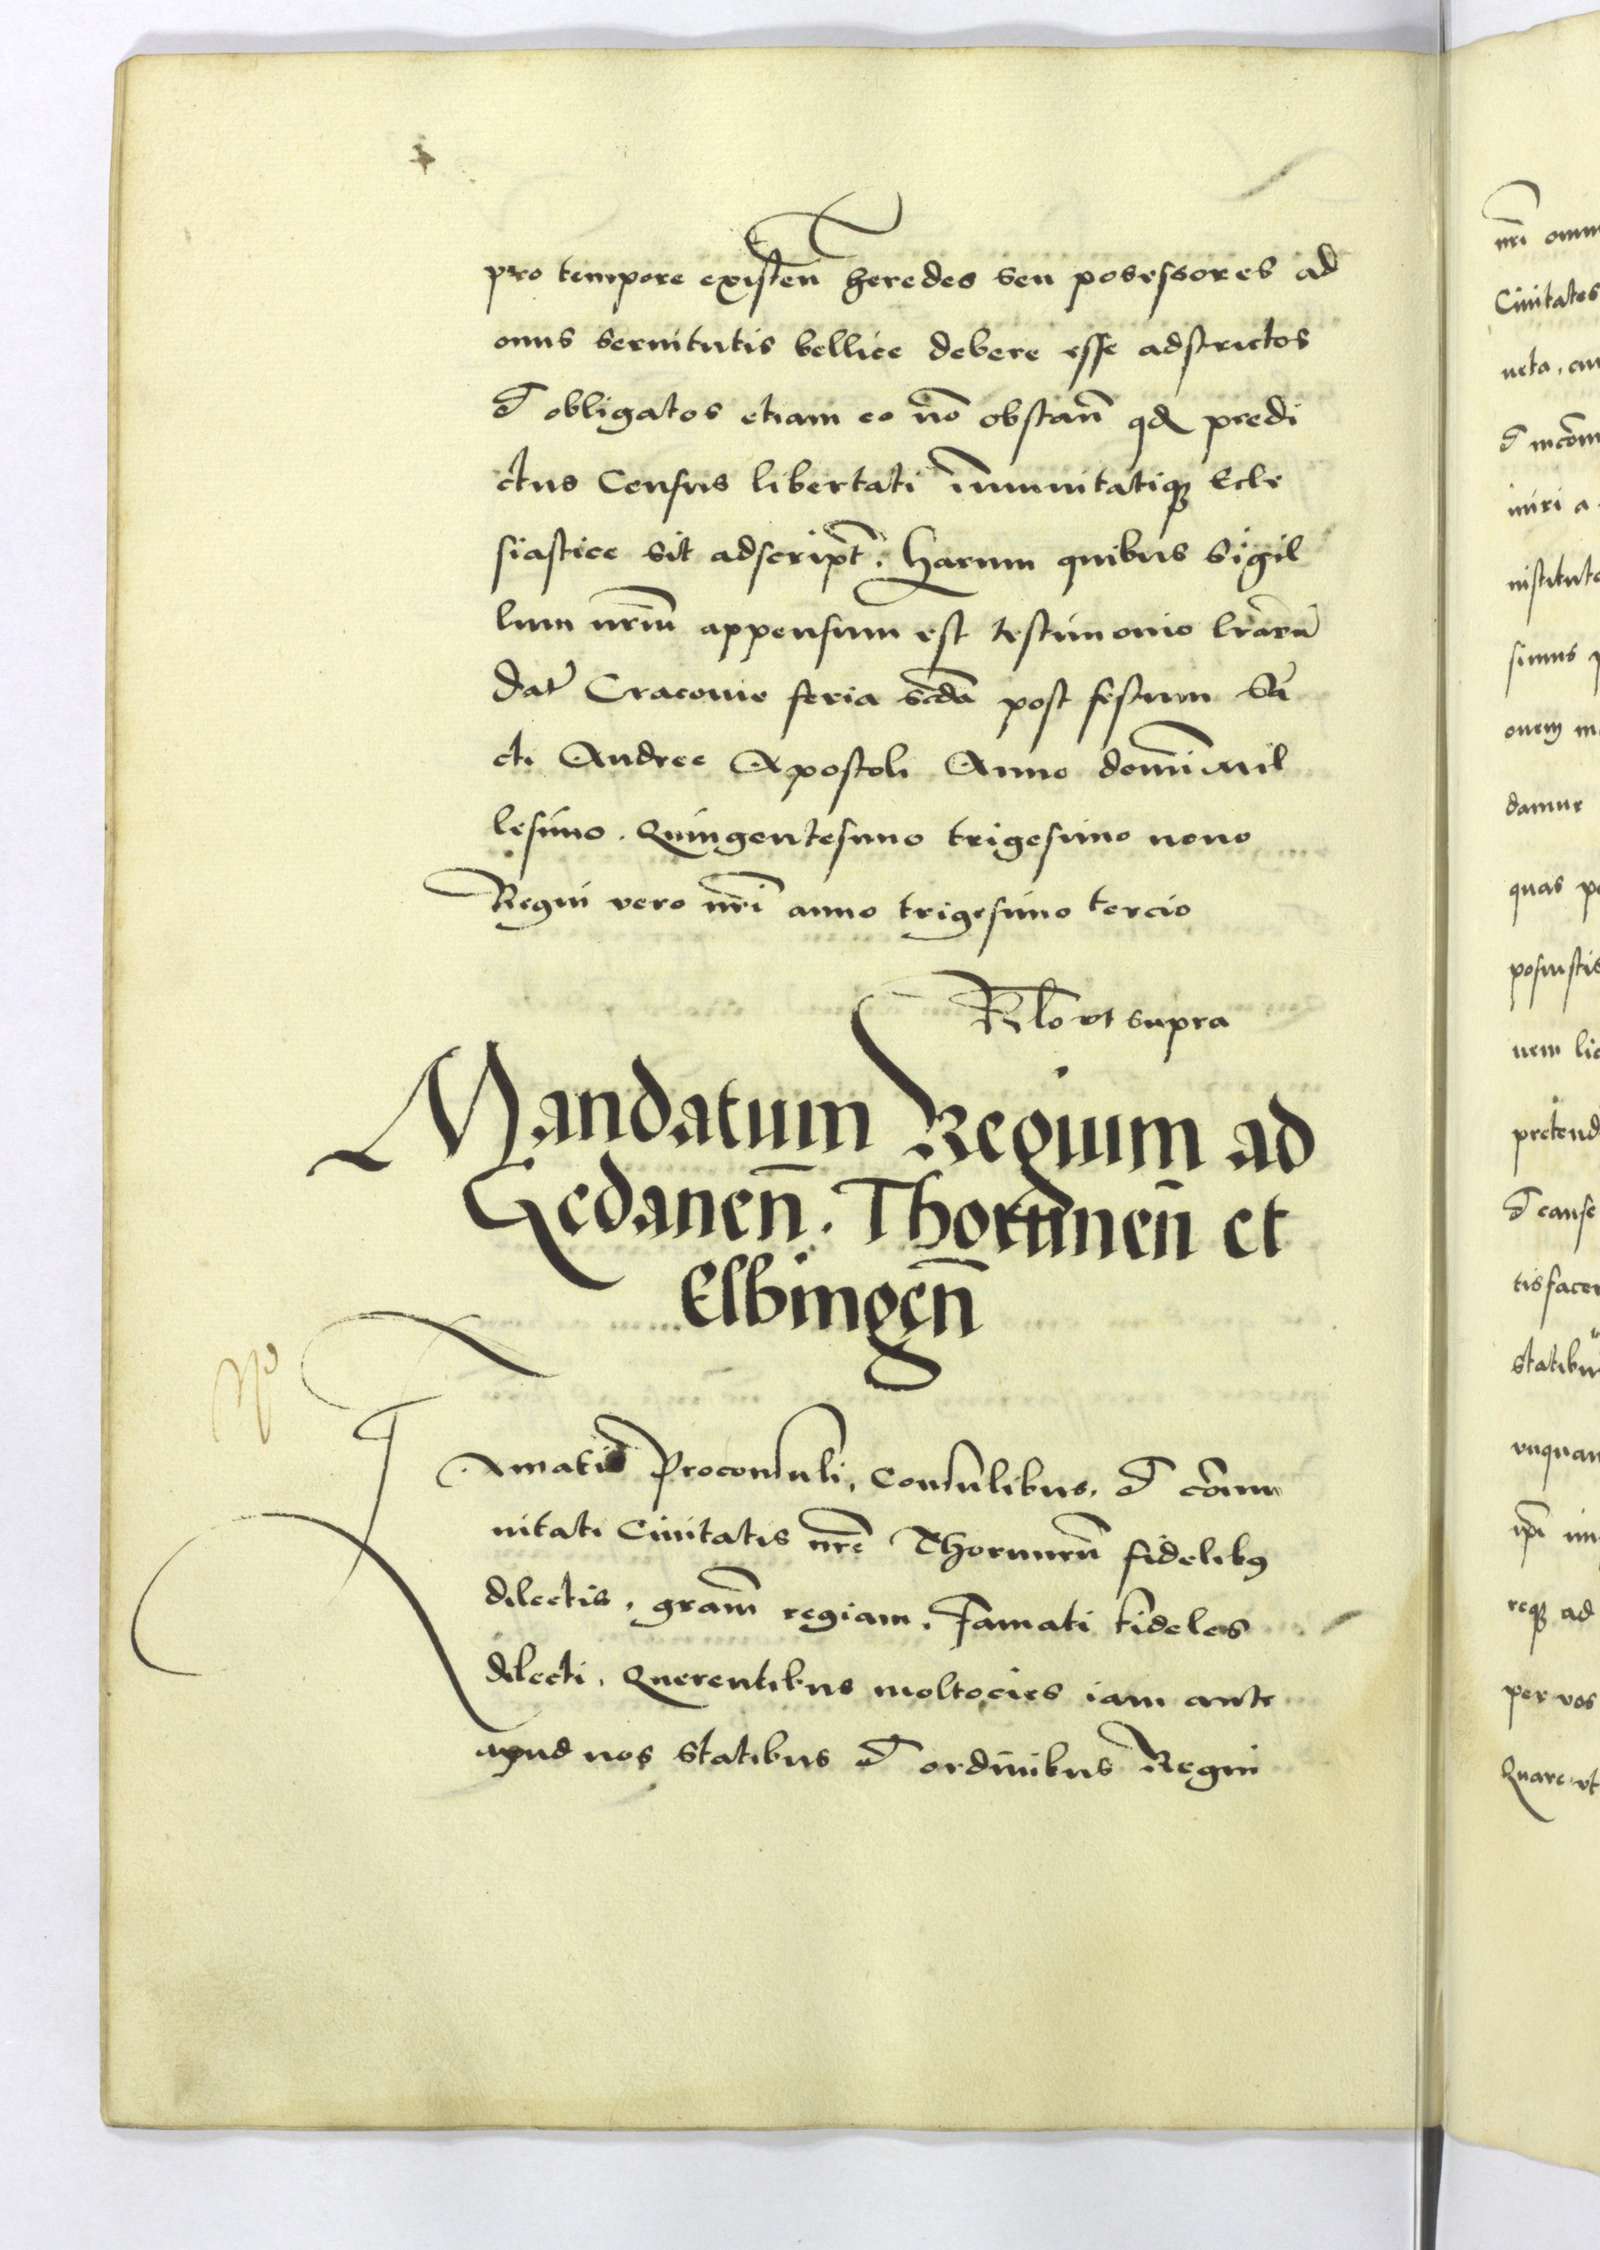 pro tempore existen̄ heredes seu posessores ad
onus seruitutis bellice debere esse adstrictos
et obligatos etiam eo nō obstan̄ qd predi
ctus Census libertati īmunitatiqȝ Ecle
siastice sit adscript̄. Harum quibus Sigil
lum nr̄m appensum est testimonio lrarū
Dat̄ Cracouie feria scda post festum Sā
cti Andree Apostoli Anno domini Mil
lesimo . Quingentesimo trigesimo nono
Regni vero nr̄i anno trigesimo tercio
Rlo vt supra
Mandatum Regium ad
Gedanen̄. Thorunen̄ et
Elbingen̄
Famatis Proconsuli, Consulibus, et cōmu
nitati Ciuitatis nr̄e Thorunen̄ fidelibꝯ
dilectis, gram̄ regiam. Famati fideles
dilecti, Querentibus moltocies iam ante
apud nos statibus et ordinibus Regni
nr̄i
Ciuitates
et
quas
statibus
per vos
Quare vt